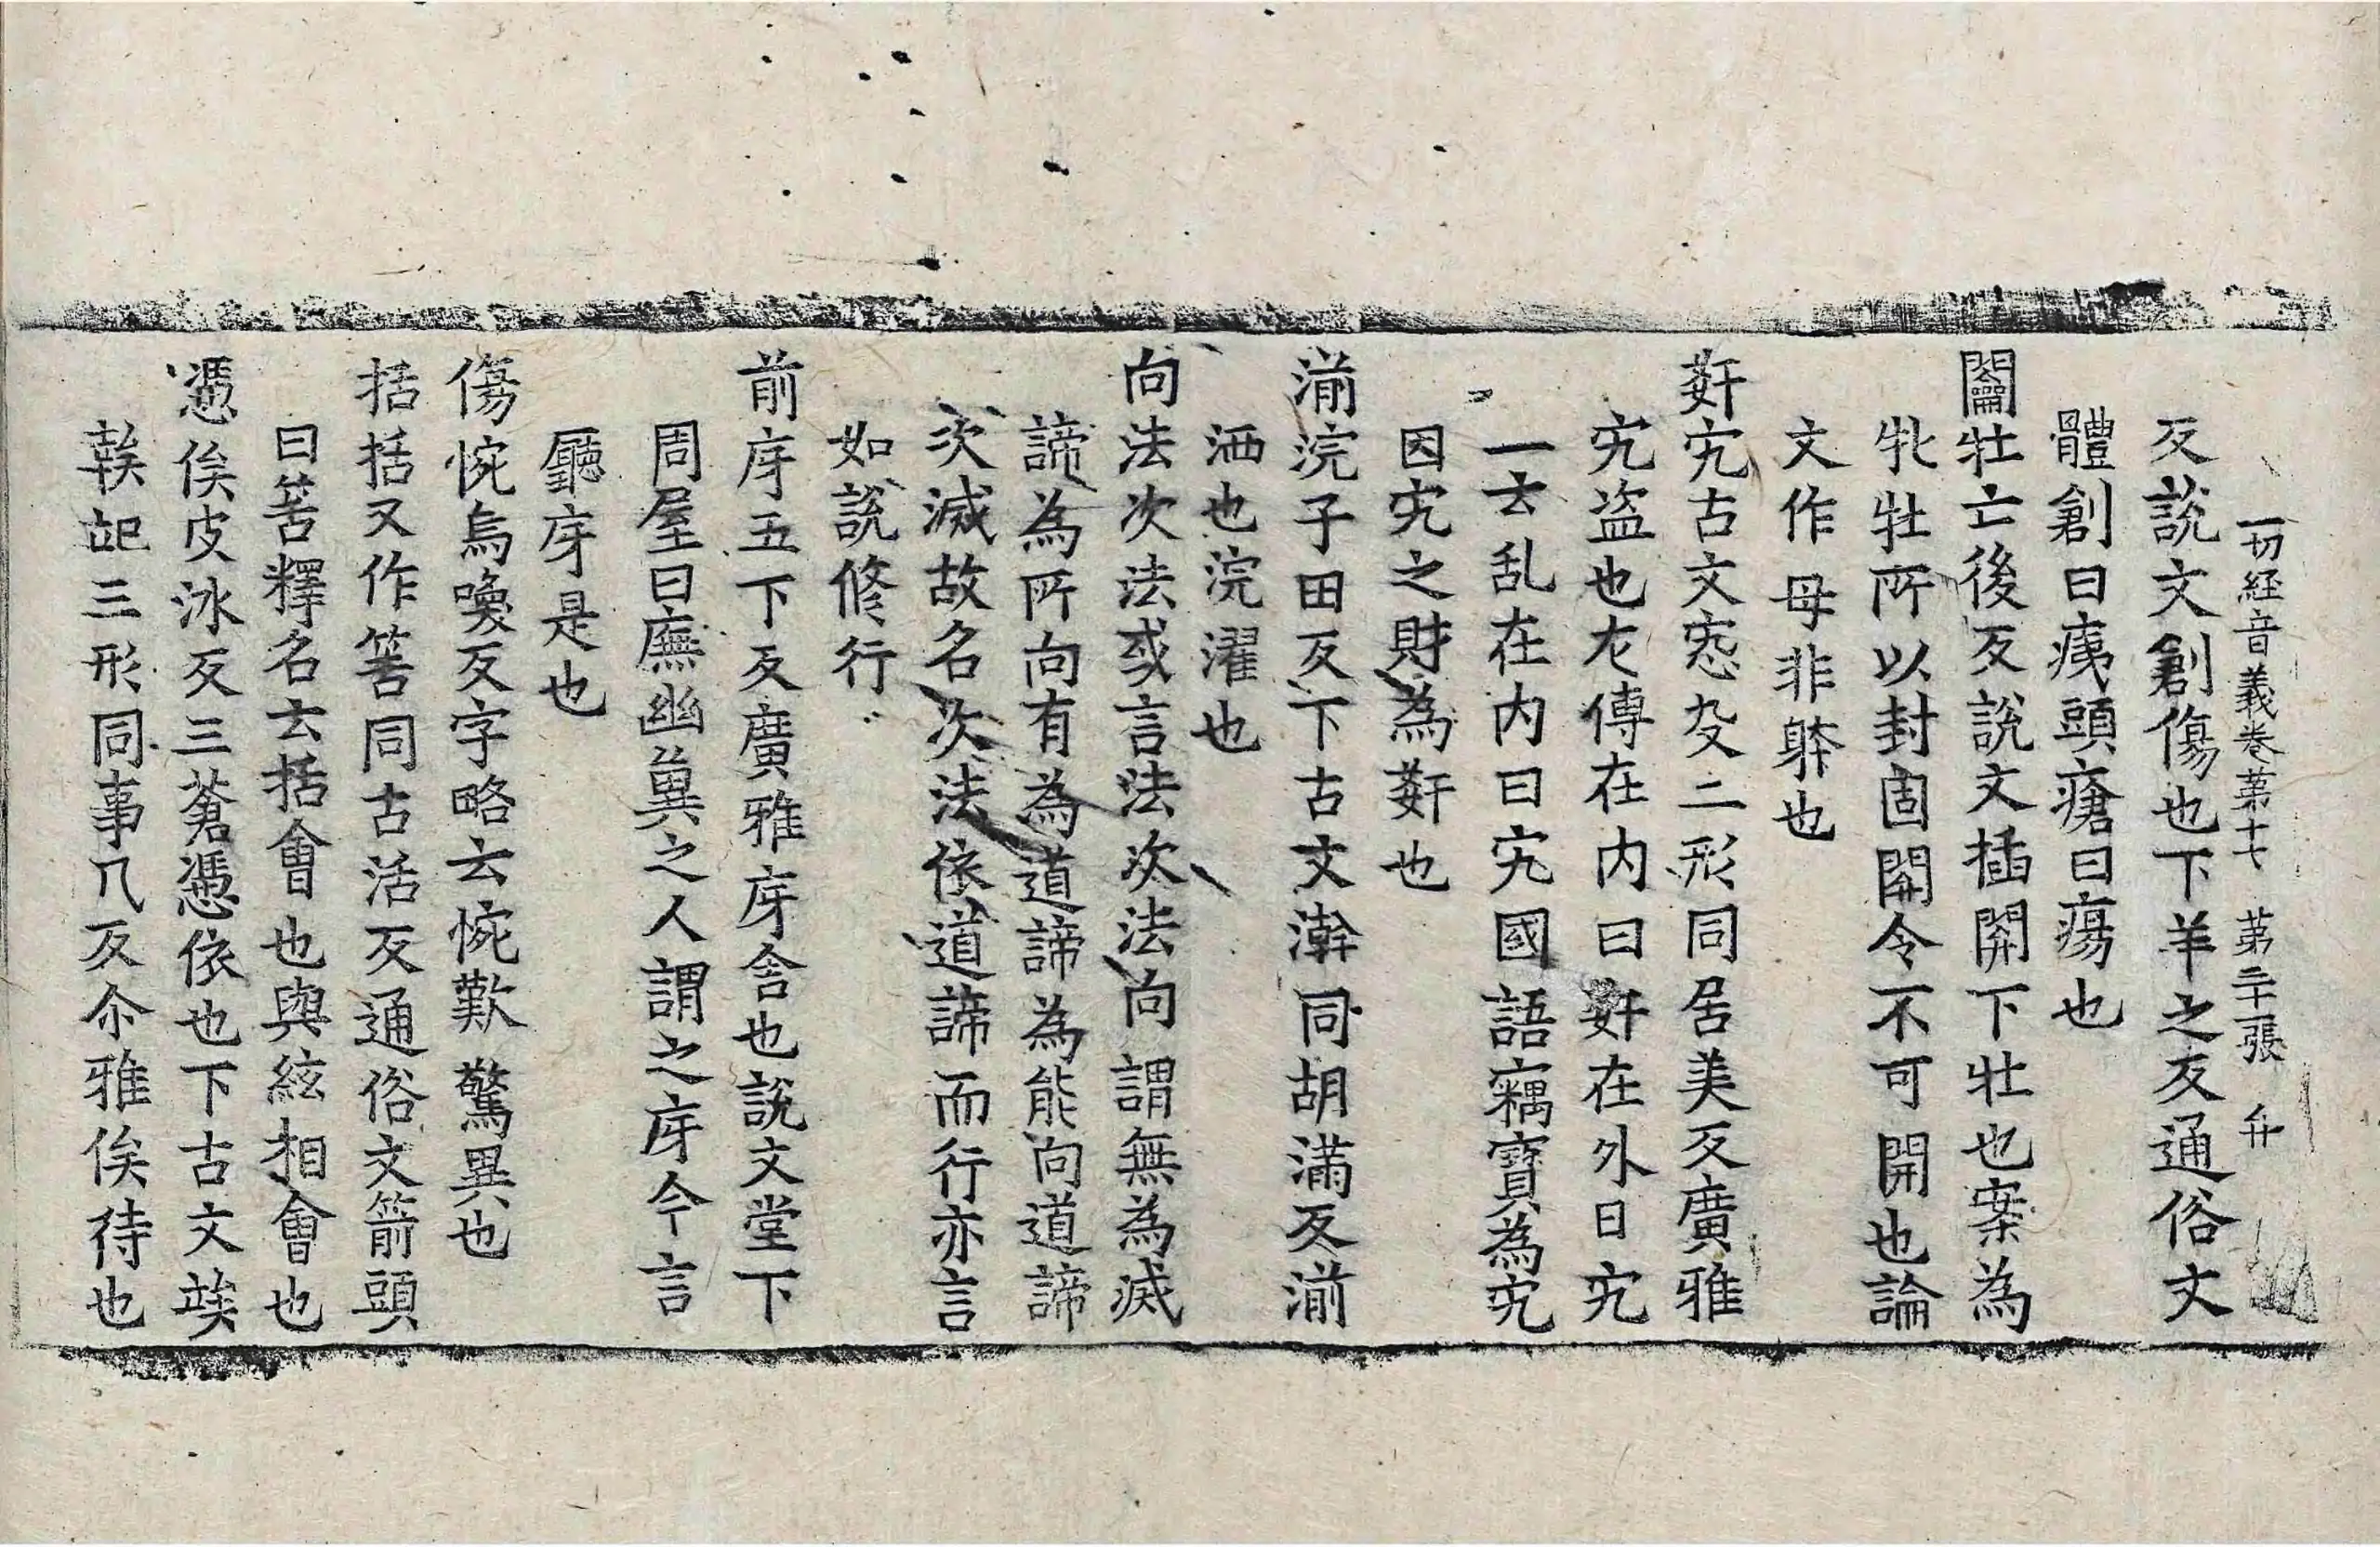 一切経音義卷苐十七 苐二十一張 弁
反説文創傷也下羊之反通俗文
體創曰痍頭瘡曰瘍也
闔牡亡後反説文插開下牡也案為
牝牡所以封固開令不可開也論
文作母非體也
姧宄古文宓殳二形同居美反廣雅
宄盜也左傳在内曰姧在外曰宄
一云乱在内曰宄國語竊寶為宄
因宄之財為姧也
湔浣子田反下古文澣同胡滿反湔
洒也浣濯也
向法次法或言法次法向謂無為滅
諦為所向有為道諦為能向道諦
次滅故名次法依道諦而行亦言
如説修行
前庌五下反廣雅庌舎也説文堂下
周屋曰廡幽冀之人謂之庌今言
廳庌是也
傷惋烏喚反字略云惋歎驚異也
括括又作筈同古活反通俗文箭頭
曰筈釋名云括會也與絃相會也
憑俟皮冰反三蒼憑依也下古文竢
三形同事几反尒雅俟待也